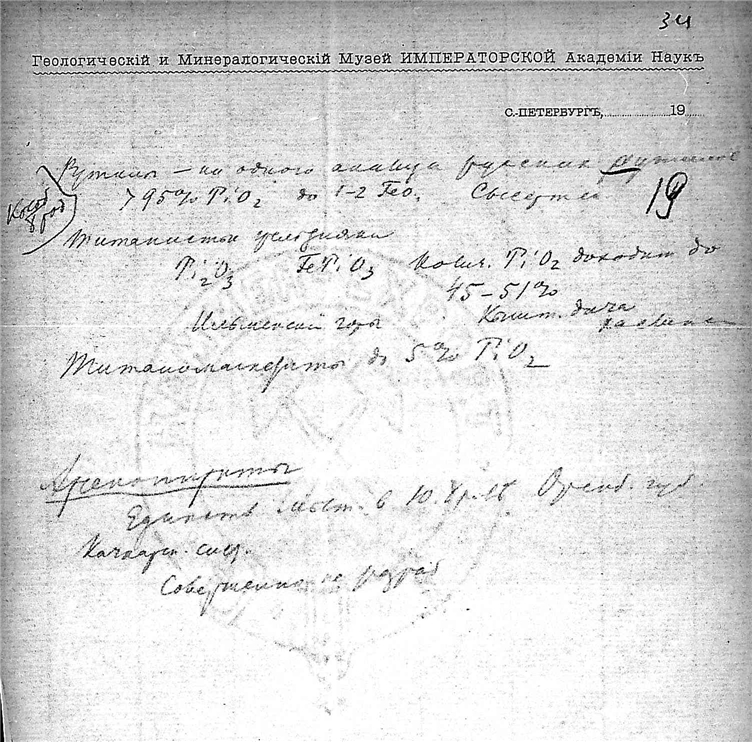 34
Геологическій и Минералогическій Музей ИМПЕРАТОРСКОЙ Академіи Наукъ
С.-ПЕТЕРБУРГЪ, 19
Рутилы – ни одного анализа русских рутилов
795% TiO2 до 1–2 FeO. Сысертск
19
Титанистые железняки
Ti2O3 FeTiO3 Колич. TiO2 доходит до
45–51%
Ильменские горы Кышт. дача
Титаномагнетиты до 5% TiO2
Арсенопириты
Единств. в Ю. Урал Оренб. губ.
Качкарск. сист.
Совершенно не